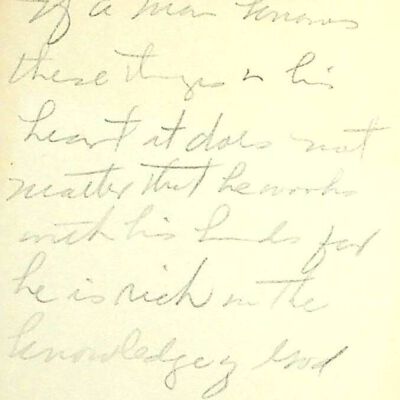 If a man knows
these things in his
heart it does not
matter that he works
with his hands for
he is rich in the
knowledge of God